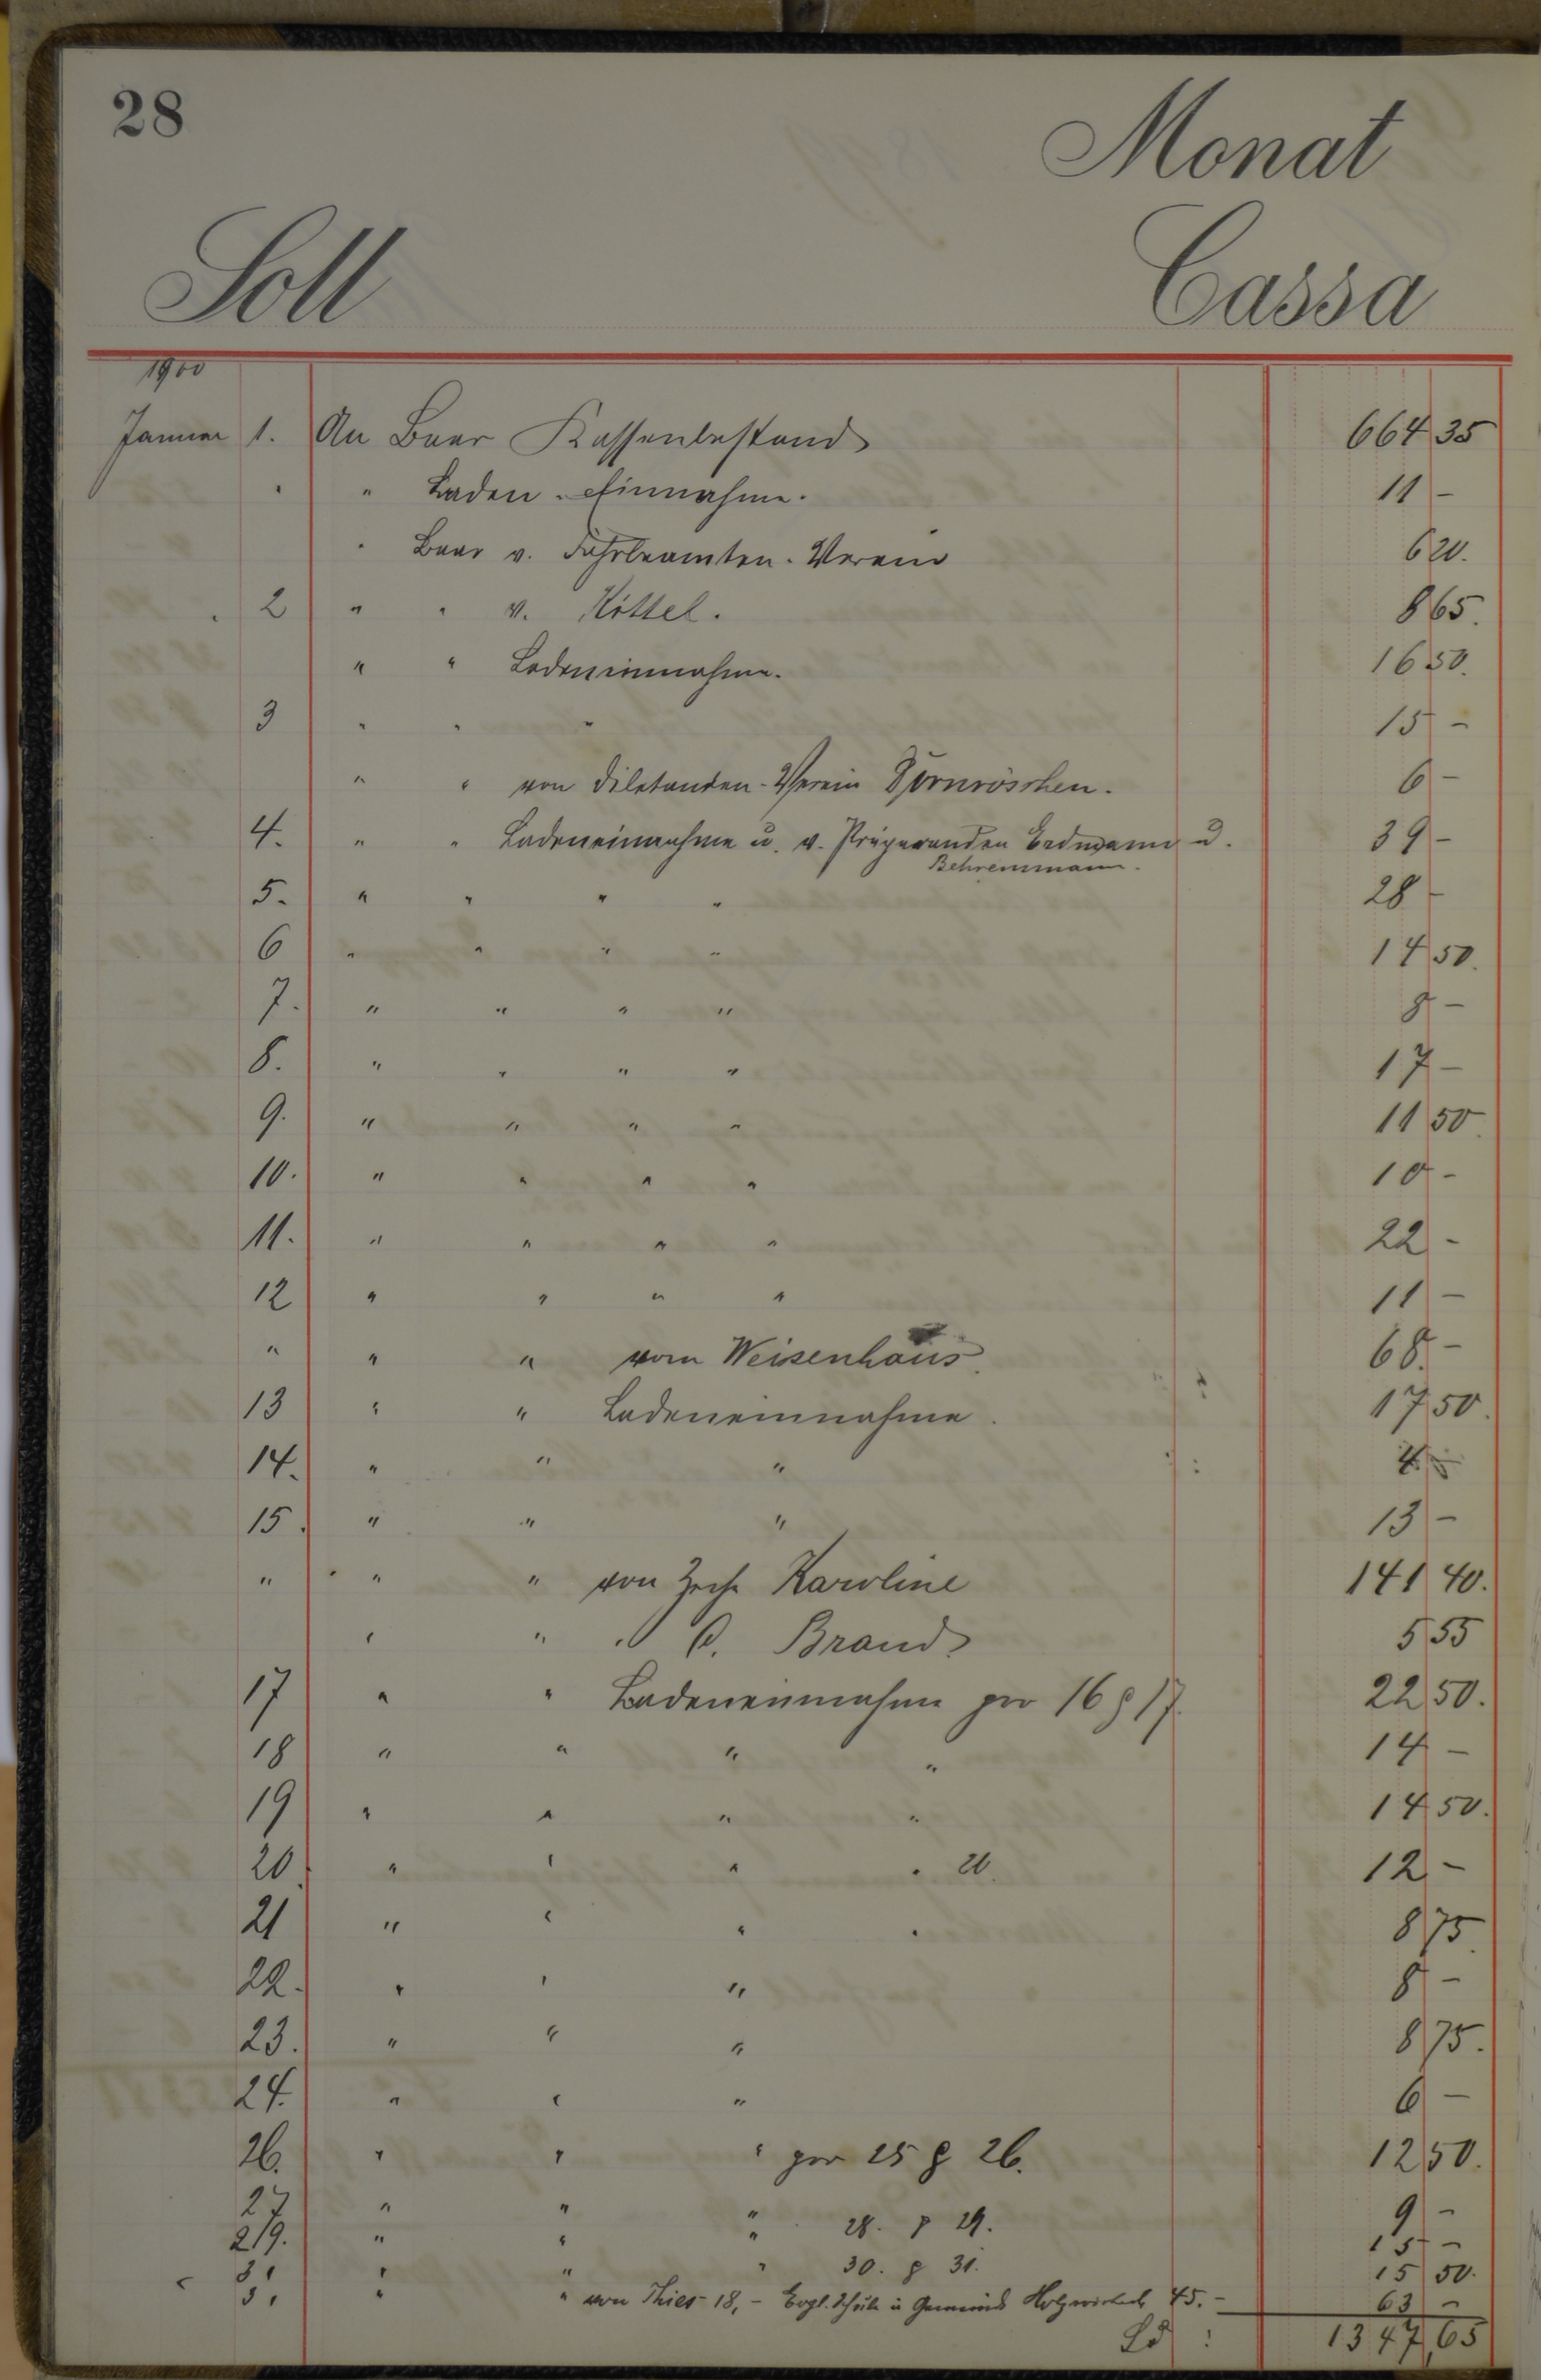 28
Monat
Soll Cassa
1900
Januar 1. An Baar Kassenbestand 664 35
" " Laden-Einnahme. 11 -
" Baar v. Fahrbeamten-Verein 6 20.
" 2 " " v. Kittel. 8 65.
" " Ladeneinnahme. 16 50.
3 " " " 15 -
" " von Diletanden-Verein Dornröschen. 6 -
4. " " Ladeneinnahme u. v. Präparanden Erdmann u. 39 -
Behremmann.
5. " " " " 28 -
6 " " " " 14 50.
7. " " " " 8 -
8. " " " " 17 -
9. " " " " 11 50
10. " " " " 10 -
11. " " " " 22 -
12 " " " " 11 -
" " " vom Weisenhaus. 68. -
13 " " Ladeneinnahme. 17 50.
14. " " "
15. " " " 13 -
" " " von Zeche Karoline 141 40.
" " " C. Brand 5 55
17 " " Ladeneinnahme pro 16 & 17. 22 50.
18 " " " " 14 -
19 " " " " 14 50.
20. " " " " 20. 12 -
21 " " " " 8 75
22. " " " 8 -
23. " " " 8 75.
24. " " " 6 -
26. " " " pro 25 & 26. 12 50.
27 " " " 9 -
29. " " " 28. & 29. 15 -
31 " " " 30. & 31. 15 50.
31 " " von Thies 18,- Evgl. Schule in Gemeinde Holzwickede 45.- 63 -
1347,65